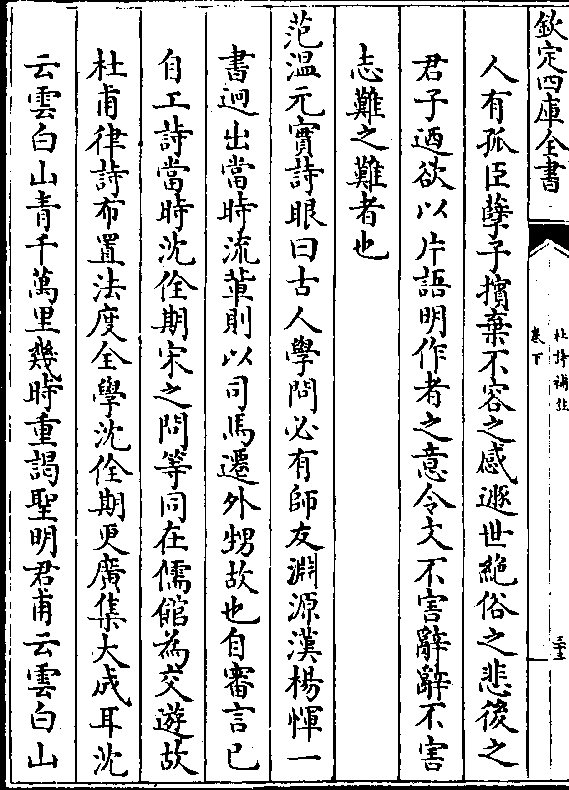 欽定四庫全書
杜詩補註
卷下
三十三
人有孤臣孽子擯棄不容之感遯世絶俗之悲後之
君子迺欲以片語明作者之意令文不害辭辭不害
志難之難者也
范溫元實詩眼曰古人學問必有師友淵源漢楊惲一
書迥出當時流軰則以司馬遷外甥故也自審言已
自工詩當時沈佺期宋之問等同在儒館為交遊故
杜甫律詩布置法度全學沈佺期更廣集大成耳沈
云雲白山青千萬里幾時重謁聖明君甫云雲白山